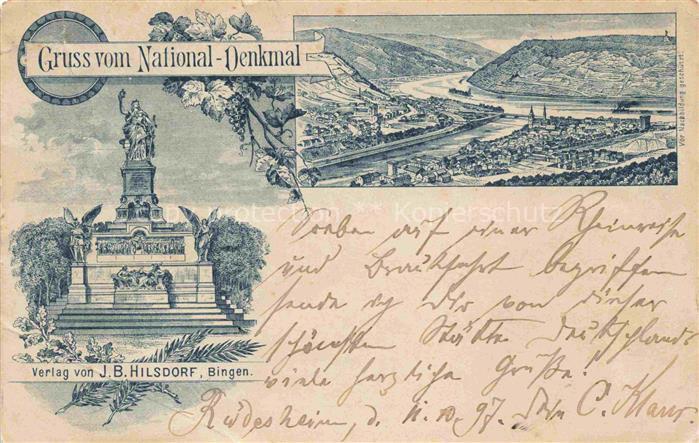 Gruss vom National-Denkmal
Vor Nachbildung geschützt.
Soeben auf einer Rheinreise
und Brautfahrt begriffen
sende ich dir von dieser
schönsten Stätte Deutschlands
viele herzliche Grüße!
Rüdesheim, d. 11.10.97. Dein C.
Verlag von J.B. HILSDORF, Bingen.